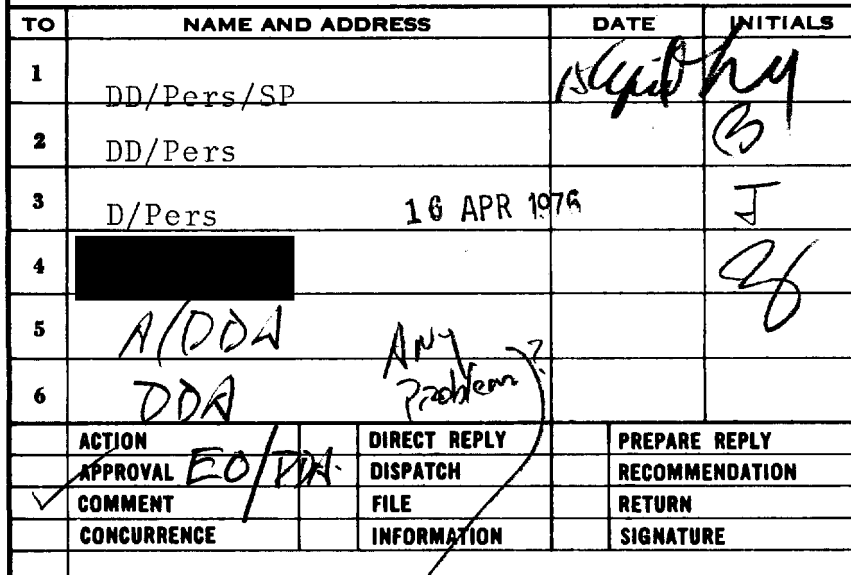 TO NAME AND ADDRESS DATE INITIALS
1 DD/Pers/SP
2 DD/Pers B
3 D/Pers 16 APR 1976 J
4
5 A/DDA Any
6 DDA Problem?
ACTION DIRECT REPLY PREPARE REPLY
APPROVAL EO/DDA DISPATCH RECOMMENDATION
COMMENT FILE RETURN
CONCURRENCE INFORMATION SIGNATURE